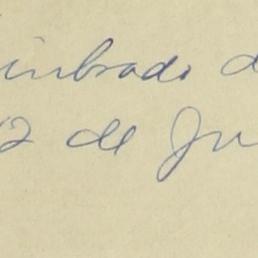 inbrado d
12 de Ju